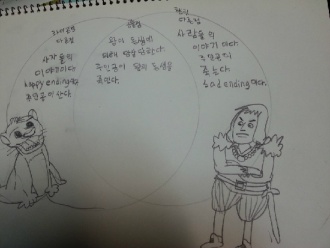 라이온킹
다른점
사자들의
이야기이다
happy ending이다
주인공이 산다.
공통점
왕이 동생에
의해 암살당한다
주인공이 왕의 동생을
죽인다.
햄릿
다른점
사람들의
이야기이다
주인공이
죽는다.
sad ending이다.